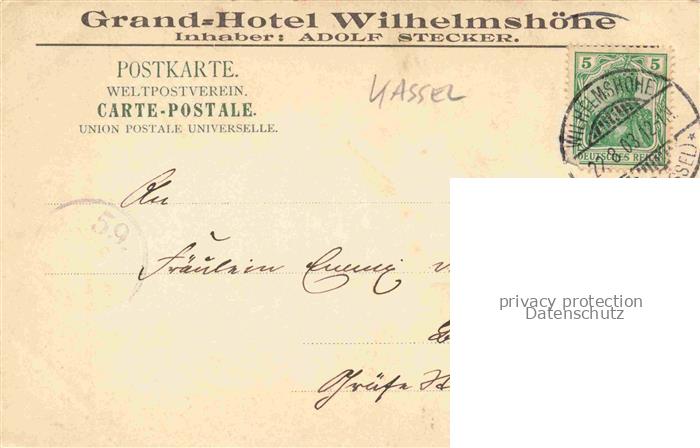 Grand-Hotel Wilhelmshöhe
Inhaber: ADOLF STECKER.
POSTKARTE.
WELTPOSTVEREIN.
CARTE-POSTALE.
UNION POSTALE UNIVERSELLE.
KASSEL
5 5
DEUTSCHES REICH
WILHELMSHÖHE
27.8.03
5.9.
An
Fräulein Emmy
privacy protection
Datenschutz